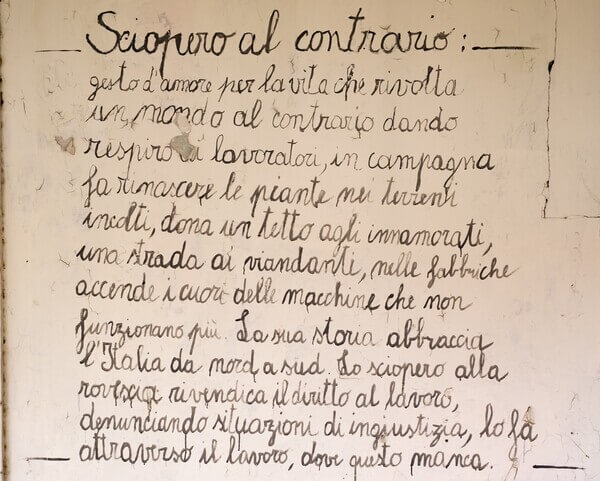 Sciopero al contrario:
gesto d'amore per la vita che rivolta
un mondo al contrario dando
respiro ai lavoratori, in campagna
fa rinascere le piante nei terreni
incolti, dona un tetto agli innamorati,
una strada ai viandanti, nelle fabbriche
accende i cuori delle macchine che non
funzionano più. La sua storia abbraccia
l'Italia da nord a sud. Lo sciopero alla
rovescia rivendica il diritto al lavoro,
denunciando situazioni di ingiustizia, lo fa
attraverso il lavoro, dove questo manca.